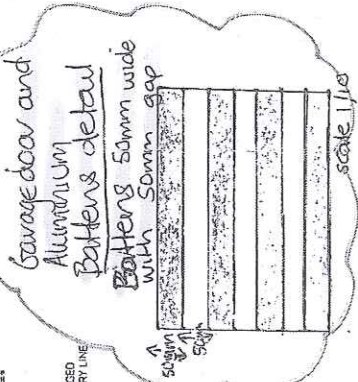 Garage door and
Aluminium
Battens detail
Battens 50mm wide
with 50mm gap
50mm
50mm
scale 1/10
GED
RY LINE